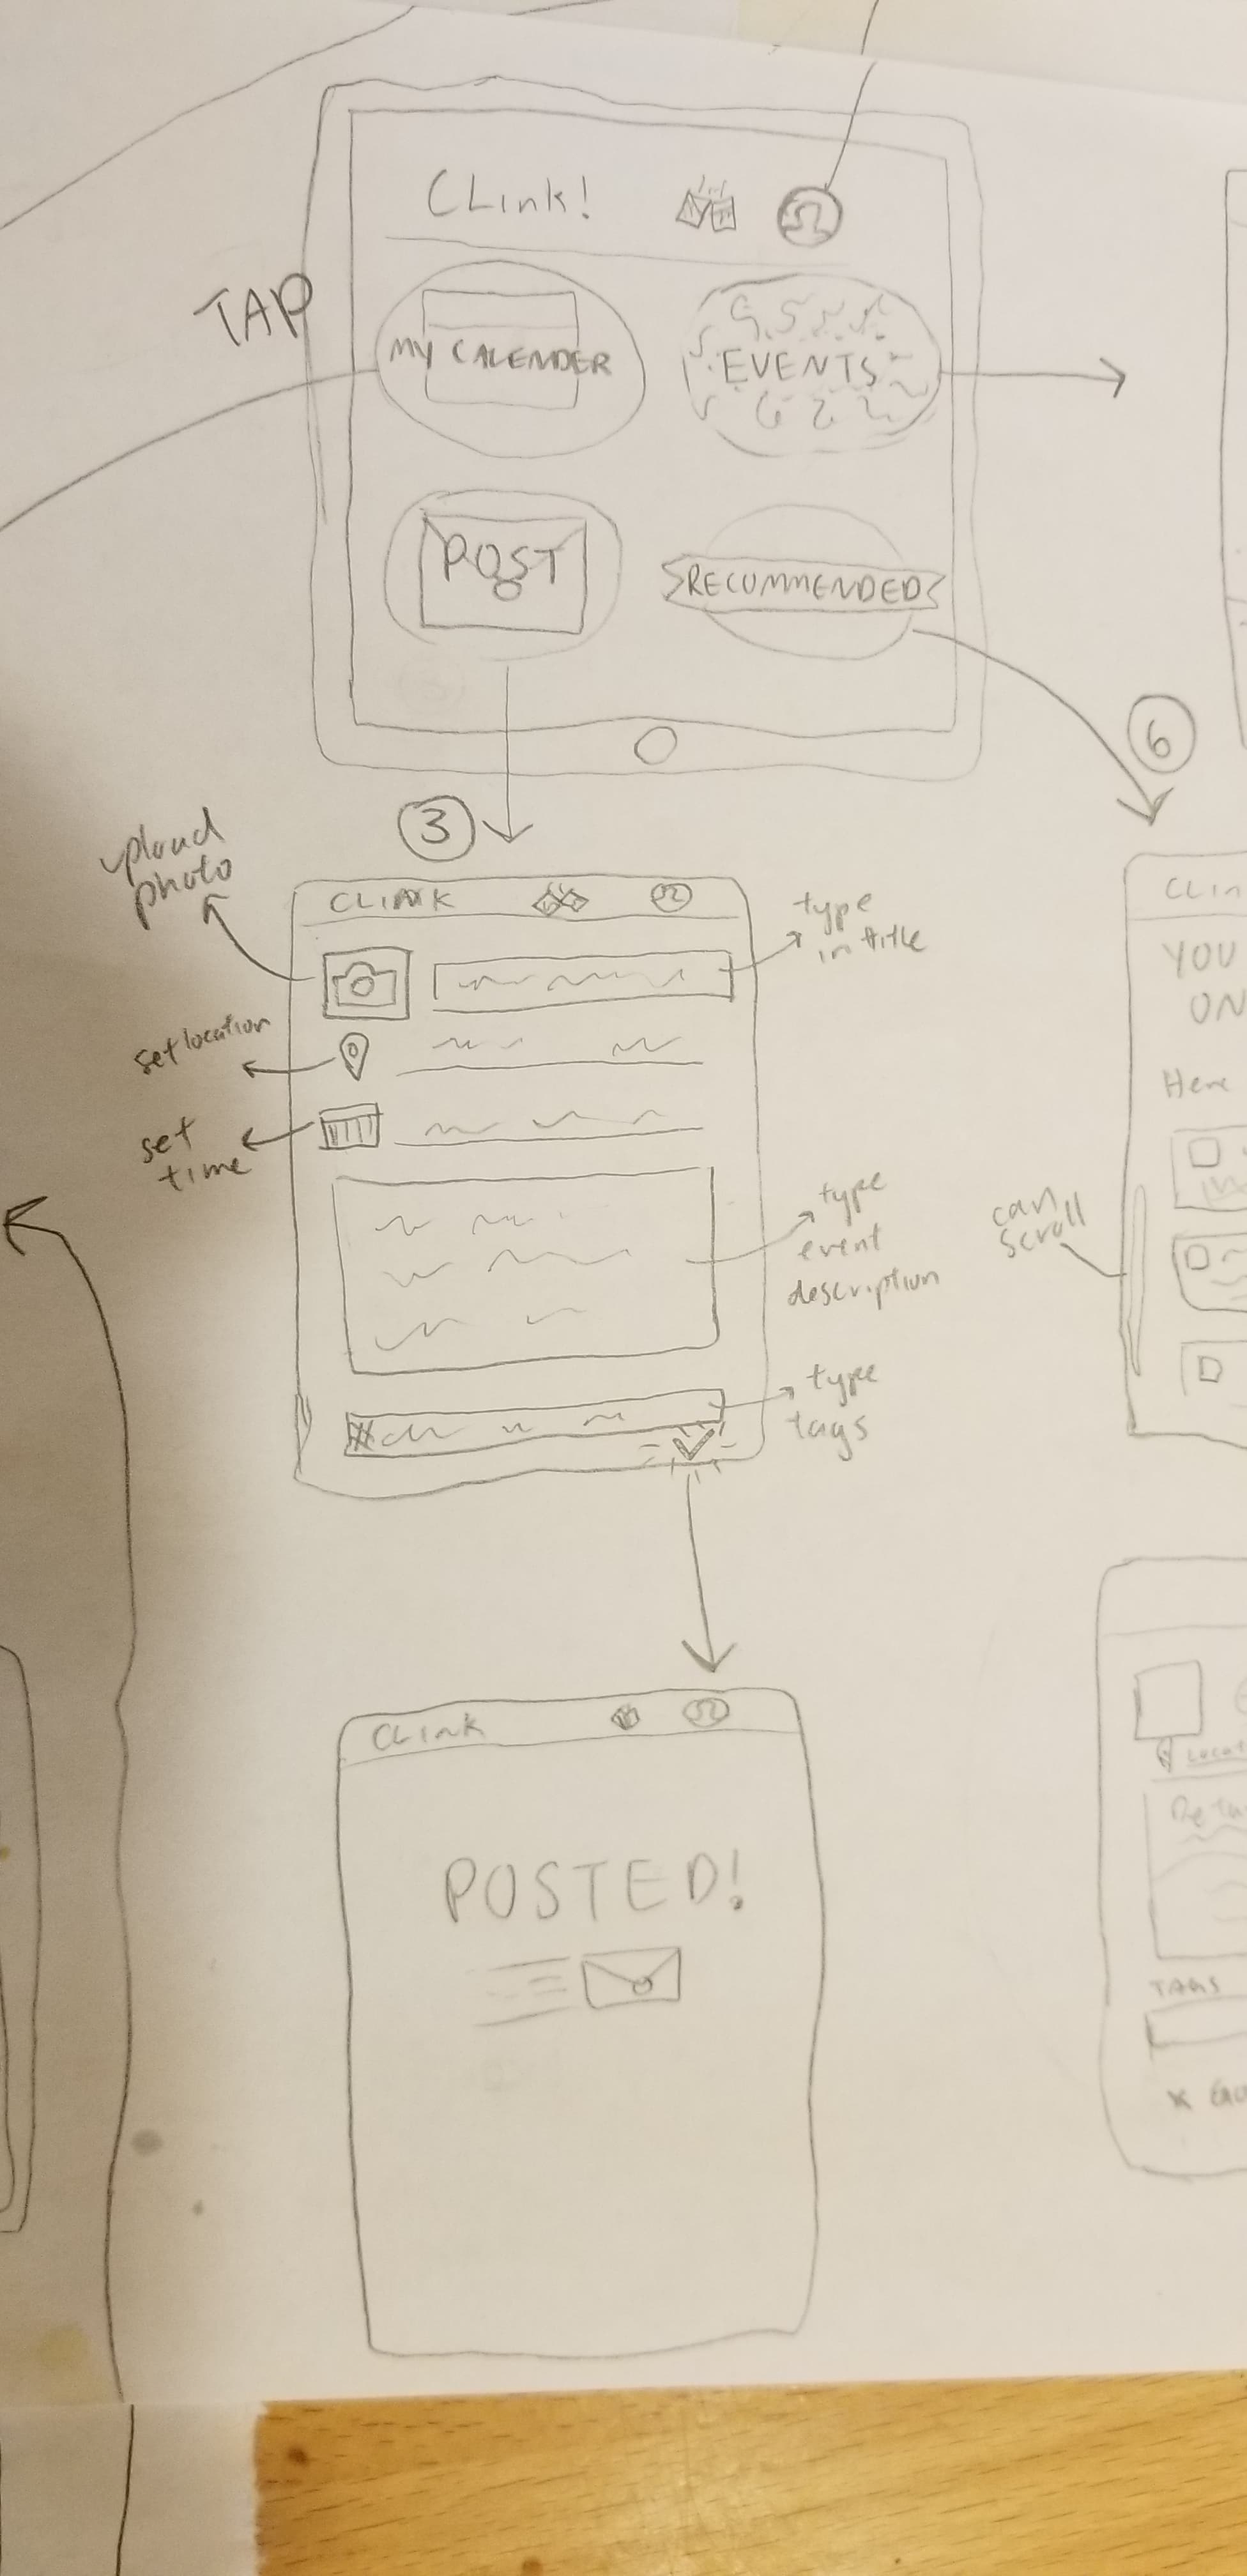 CLink!
TAP
MY CALENDER
EVENTS
POST
RECOMMENDED
6
3
upload
photo
CLINK
type
in title
set location
set
time
type
event
description
type
tags
#
CLin
YOU
ON
Here
can
scroll
CLink
POSTED!
Locat
Deta
TAGS